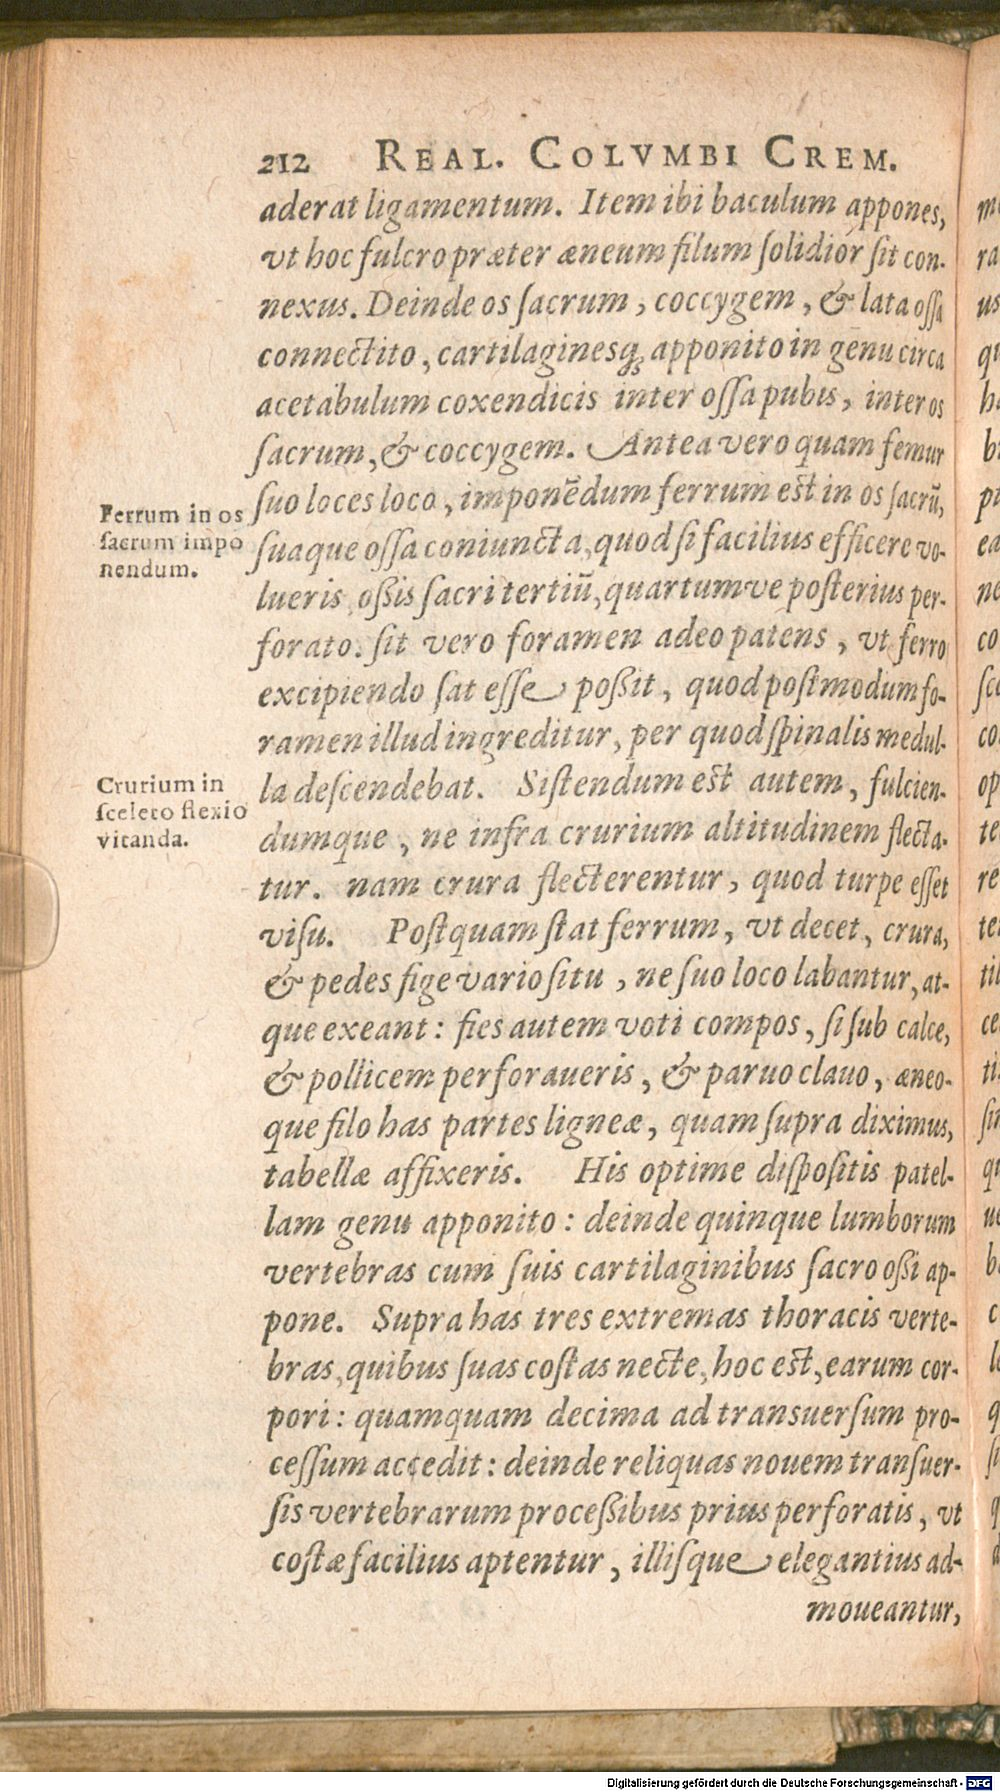 212 REAL. COLVMBI CREM.
aderat ligamentum. Item ibi baculum appones,
vt hoc fulcro præter æneum filum ſolidiór ſit con-
nexus. Deinde os ſacrum, coccygem, & lata oſſa
connectito, cartilaginesq; apponito in genu circa
acetabulum coxendicis inter oſſa pubis, inter os
ſacrum, & coccygem. Antea vero quam femur
ſuo loces loco, imponẽdum ferrum est in os ſacrũ,
ſuaque oſſa coniuncta, quod ſi facilius efficere vo-
lueris oßis ſacri tertiũ, quartumve poſterius per-
forato. ſit vero foramen adeo patens, vt ferro
excipiendo ſat eſſe poßit, quod poſtmodum fo-
ramen illud ingreditur, per quod ſpinalis medul-
la deſcendebat. Siſtendum est autem, fulcien-
dumque, ne infra crurium altitudinem flecta-
tur. nam crura flecterentur, quod turpe eſſet
viſu. Poſtquam ſtat ferrum, vt decet, crura,
& pedes fige vario ſitu, ne ſuo loco labantur, at-
que exeant: fies autem voti compos, ſi ſub calce,
& pollicem perforaueris, & paruo clauo, æneo-
que filo has partes ligneæ, quam ſupra diximus,
tabellæ affixeris. His optime diſpoſitis patel-
lam genu apponito: deinde quinque lumborum
vertebras cum ſuis cartilaginibus ſacro oßi ap-
pone. Supra has tres extremas thoracis verte-
bras, quibus ſuas coſtas necte, hoc est, earum cor-
pori: quamquam decima ad transuerſum pro-
ceſſum accedit: deinde reliquas nouem tranſuer-
ſis vertebrarum proceßibus prius perforatis, vt
coſtæ facilius aptentur, illiſque elegantius ad-
moueantur,
Ferrum in os
ſacrum impo
nendum.
Crurium in
ſceleto flexio
vitanda.
Digitalisierung gefördert durch die Deutsche Forschungsgemeinschaft - DFG